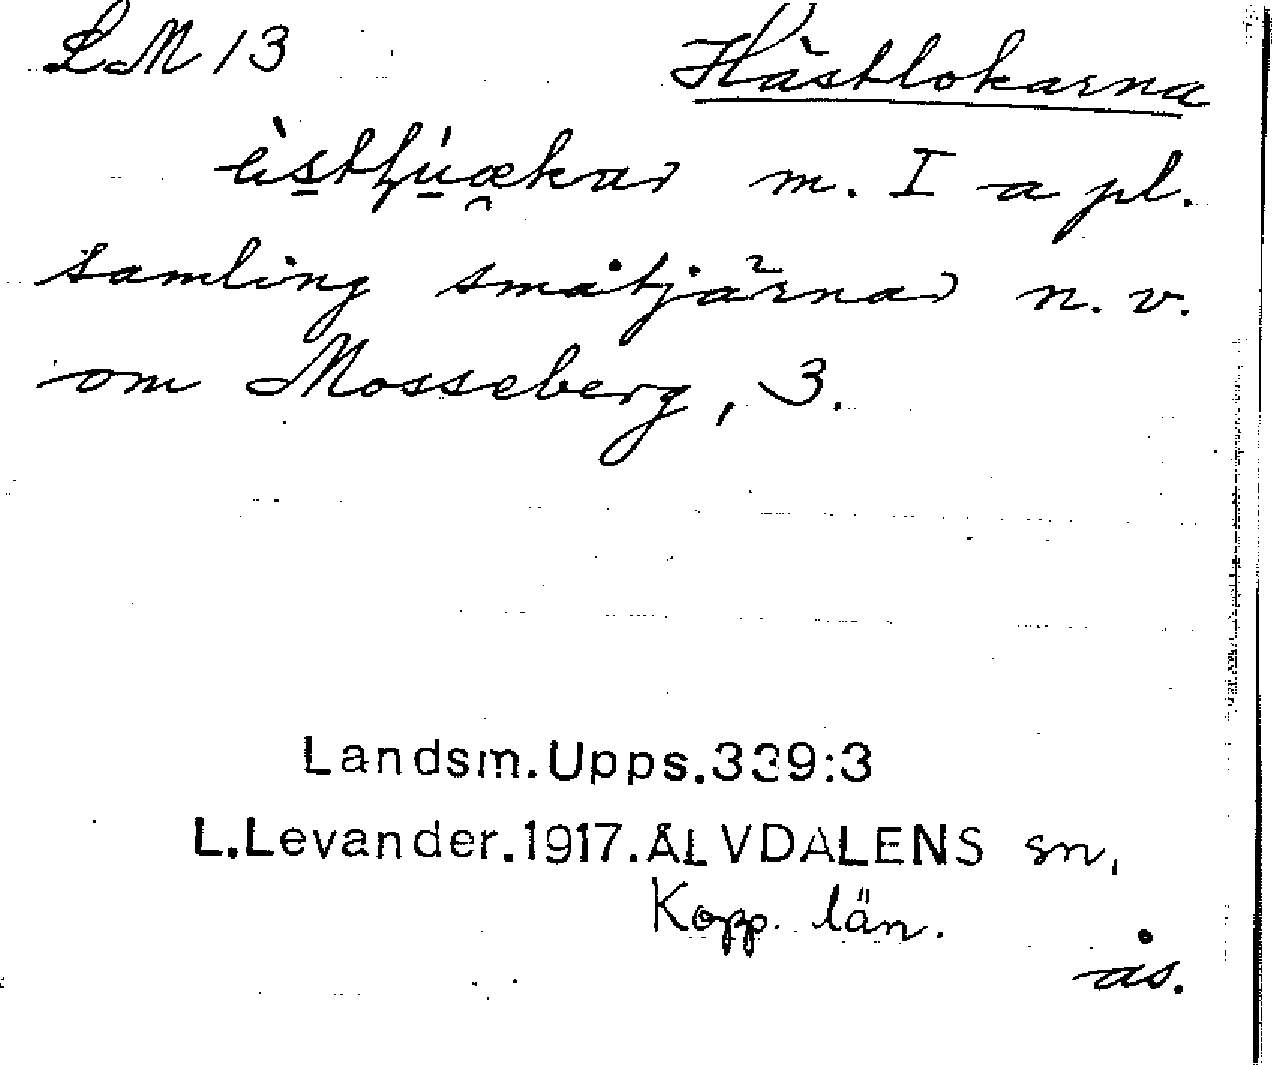 LM 13
Hästlokarna
m. I a pl.
samling småtjärnar n. v.
om Mosseberg, 3.
Landsm.Upps.339:3
L.Levander.1917.ÄLVDALENS sn,
Kopp. län.
ås.